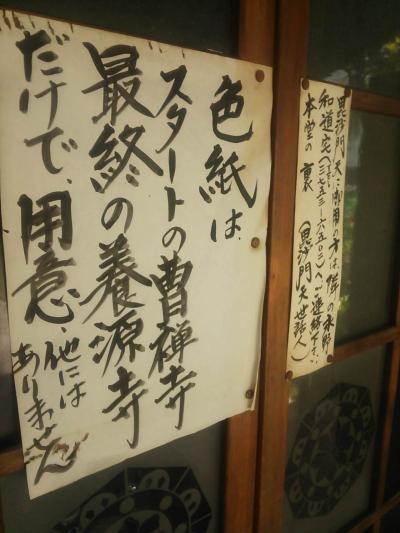 色紙は、
スタートの曹禅寺
最終の養源寺
だけで、用意、他には
ありません
毘沙門天に御用の方は、隣の水野
和道宅(三七五三-六五〇二)へご連絡下さい
本堂の裏 (毘沙門天世話人)